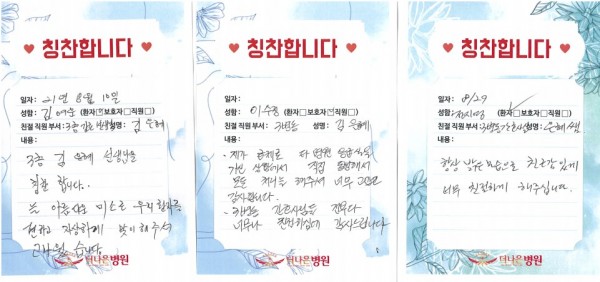 칭찬합니다
일자: 21년 8월 10일
성함: 김 (환자☑보호자□직원□)
친절 직원 부서: 3층 성명: 김은혜
내용:
3층 김은혜 선생님을
칭찬 합니다.
늘 아름다운 미소로 우리 환자를
친절하고 자상하게 맞이해주셔
고마웠습니다
더나은병원
칭찬합니다
일자:
성함: 이수 (환자□보호자☑직원□)
친절 직원 부서: 3병동 성명: 김은혜
내용:
제가 다
가신 상황에서 직접 병원에서
모든 처리를 해주셔 너무 고맙고
감사합니다.
3병동 간호사님들 전부다
너무나 친절하십니다 감사드립니다
더나은병원
칭찬합니다
일자: 8/29
성함: (환자☑보호자□직원□)
친절 직원 부서: 3병동 간호사 성명: 은혜쌤
내용:
항상 밝은 모습으로 친근감있게
너무 친절하게 해주십니다.
더나은병원